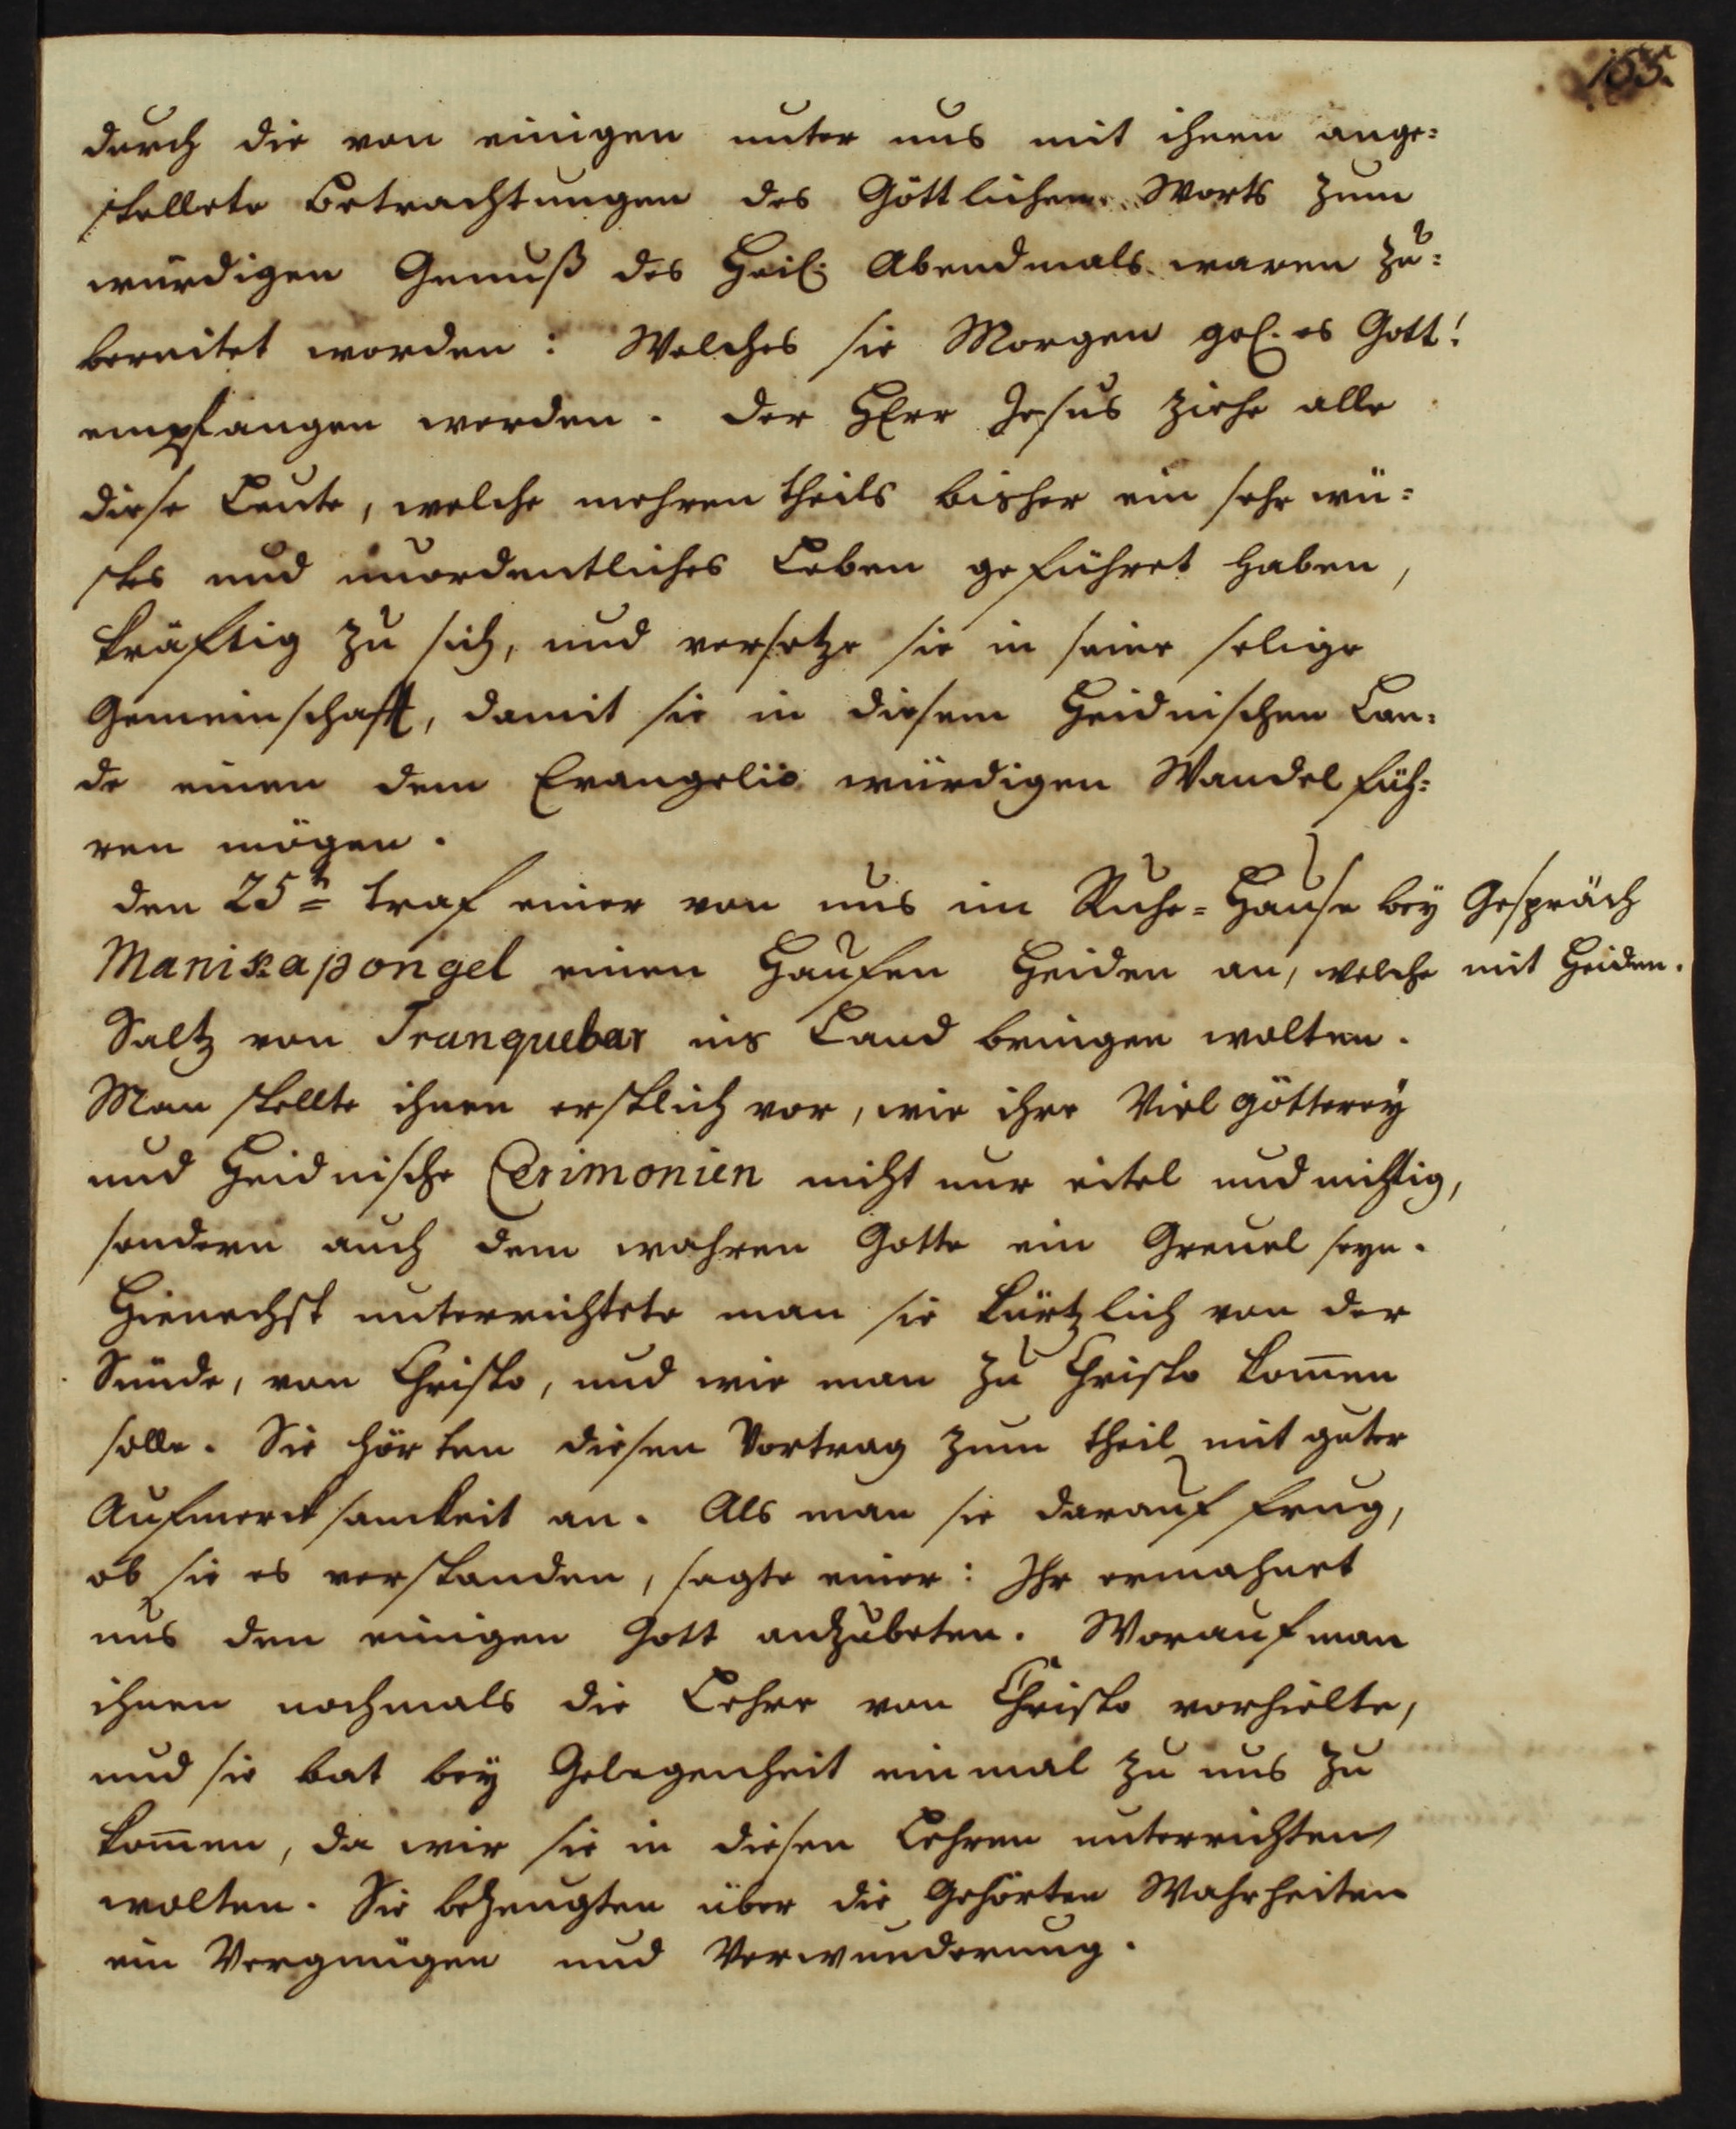 155.
durch die von einigen unter uns mit ihnen ange=
stellete Betrachtungen des Göttlichen Worts zum
würdigen Genuß des Heil. Abendmals waren zu=
bereitet worden: Welches sie Morgen gel. es Gott!
empfangen werden. Der HErr Jesus ziehe alle
diese Leute, welche mehrentheils bisher ein sehr wü=
stes und unordentliches Leben geführet haben,
kräftig zu sich, und versetze sie in seine selige
Gemeinschaft, damit sie in diesem Heidnischen Lan=
de einen dem Evangelio würdigen Wandel füh=
ren mögen.
den 25n traf einer von uns im Ruhe=Hause bey
Manikapongel einen Haufen Heiden an, welche
Gespräch
mit Heiden.
Saltz von Tranquebar ins Land bringen wolten.
Man stellte ihnen erstlich vor, wie ihre Vielgötterey
und Heidnische Cerimonien nicht nur eitel und nichtig,
sondern auch dem wahren Gotte ein Greuel seyn.
Hienechst unterrichtete man sie kürtzlich von der
Sünde, von Christo, und wie man zu Christo kom̄en
solle. Sie hörten diesen Vortrag zum theil mit guter
Aufmercksamkeit an. Als man sie darauf frug,
ob sie es verstanden, sagte einer: Ihr ermahnet
uns den einigen Gott anzubeten. Worauf man
ihnen nochmals die Lehre von Christo vorhielte,
und sie bat bey Gelegenheit einmal zu uns zu
kom̄en, da wir sie in diesen Lehren unterrichten
wolten. Sie bezeugten über die gehörten Wahrheiten
ein Vergnügen und Verwunderung.